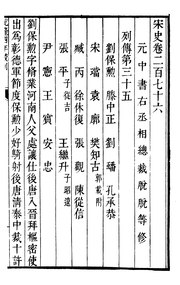 宋史卷二百七十六
元中書右丞相總裁脫脫等修
列傳第三十五
劉保勳 滕中正 劉蟠 孔承恭
宋璫 袁廓 樊知古 郭載附
臧丙 徐休復 張觀 陳從信
張平 子從吉 王繼升 子昭遠
尹憲 王賓 安忠
劉保勳字脩業河南人父處讓仕後唐入晉拜樞密使
出為彰德軍節度保勳少好騎射後唐清泰中裁十許